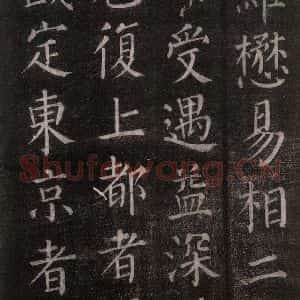 懋易相二
受遇益深
復上都者
定東京者
Shufawang.CN